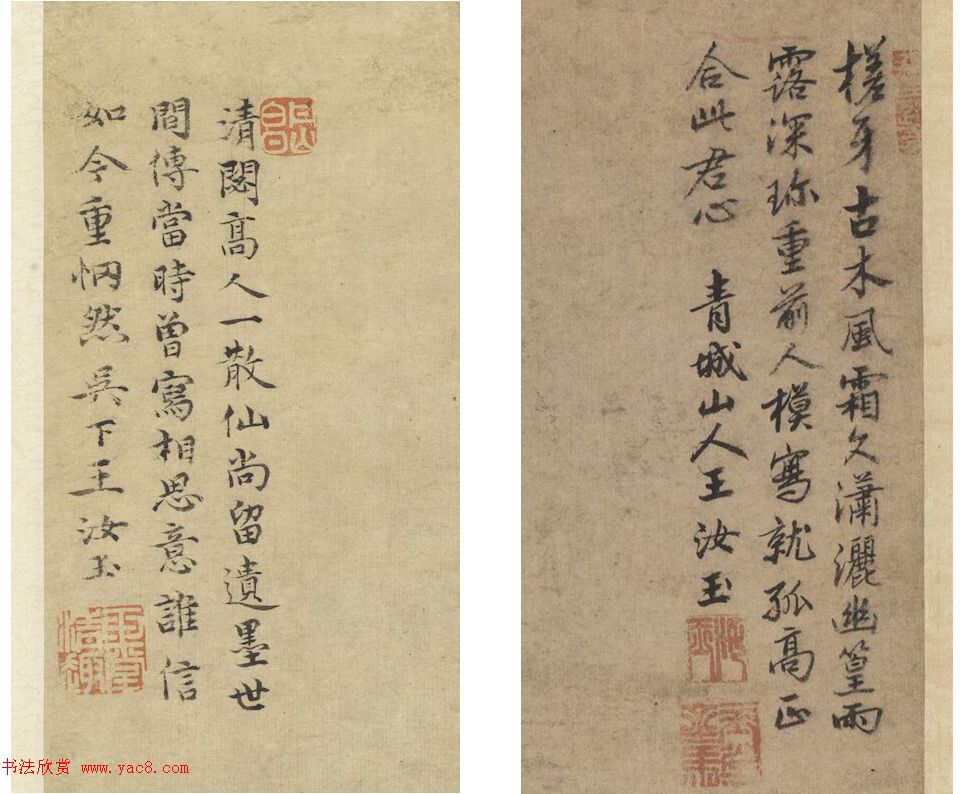 槎牙古木風霜久瀟灑幽篁雨
露深珎重前人模寫就孤高正
合此君心 青城山人王汝玉
清閟高人一散仙尚留遺墨世
間傳當時曾寫相思意誰信
如今重惘然吳下王汝玉
书法欣赏 www.yac8.com